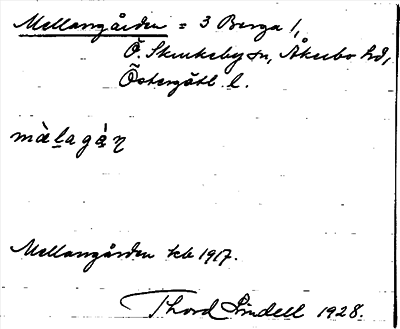 Mellangården = 3 Berga 1,
Ö. Skrukeby sn, Åkerbo hd,
Östergötl. l.
màḻagạ̀ṇ
Mellangården kb 1917.
Thord Lindell 1928.